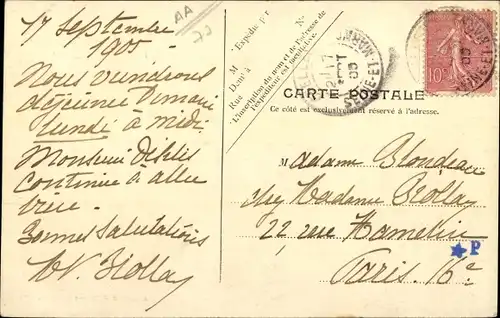 17 Septembre
1905
Nous viendrons
déjeuner Demain
lundi à midi.
Monsieur
continue à aller
Bonnes Salutations
AA
M Expédié p
M
Dem' à
Rue N
L'inscription du nom et de l'adresse de
l'expéditeur est facultative.
CARTE POSTALE
Ce côté est exclusivement réservé à l'adresse.
17
SEPT
05
10
05
Madame Blondeau
chez Madame Rolla
22, rue Hamelin
Paris 16e
P